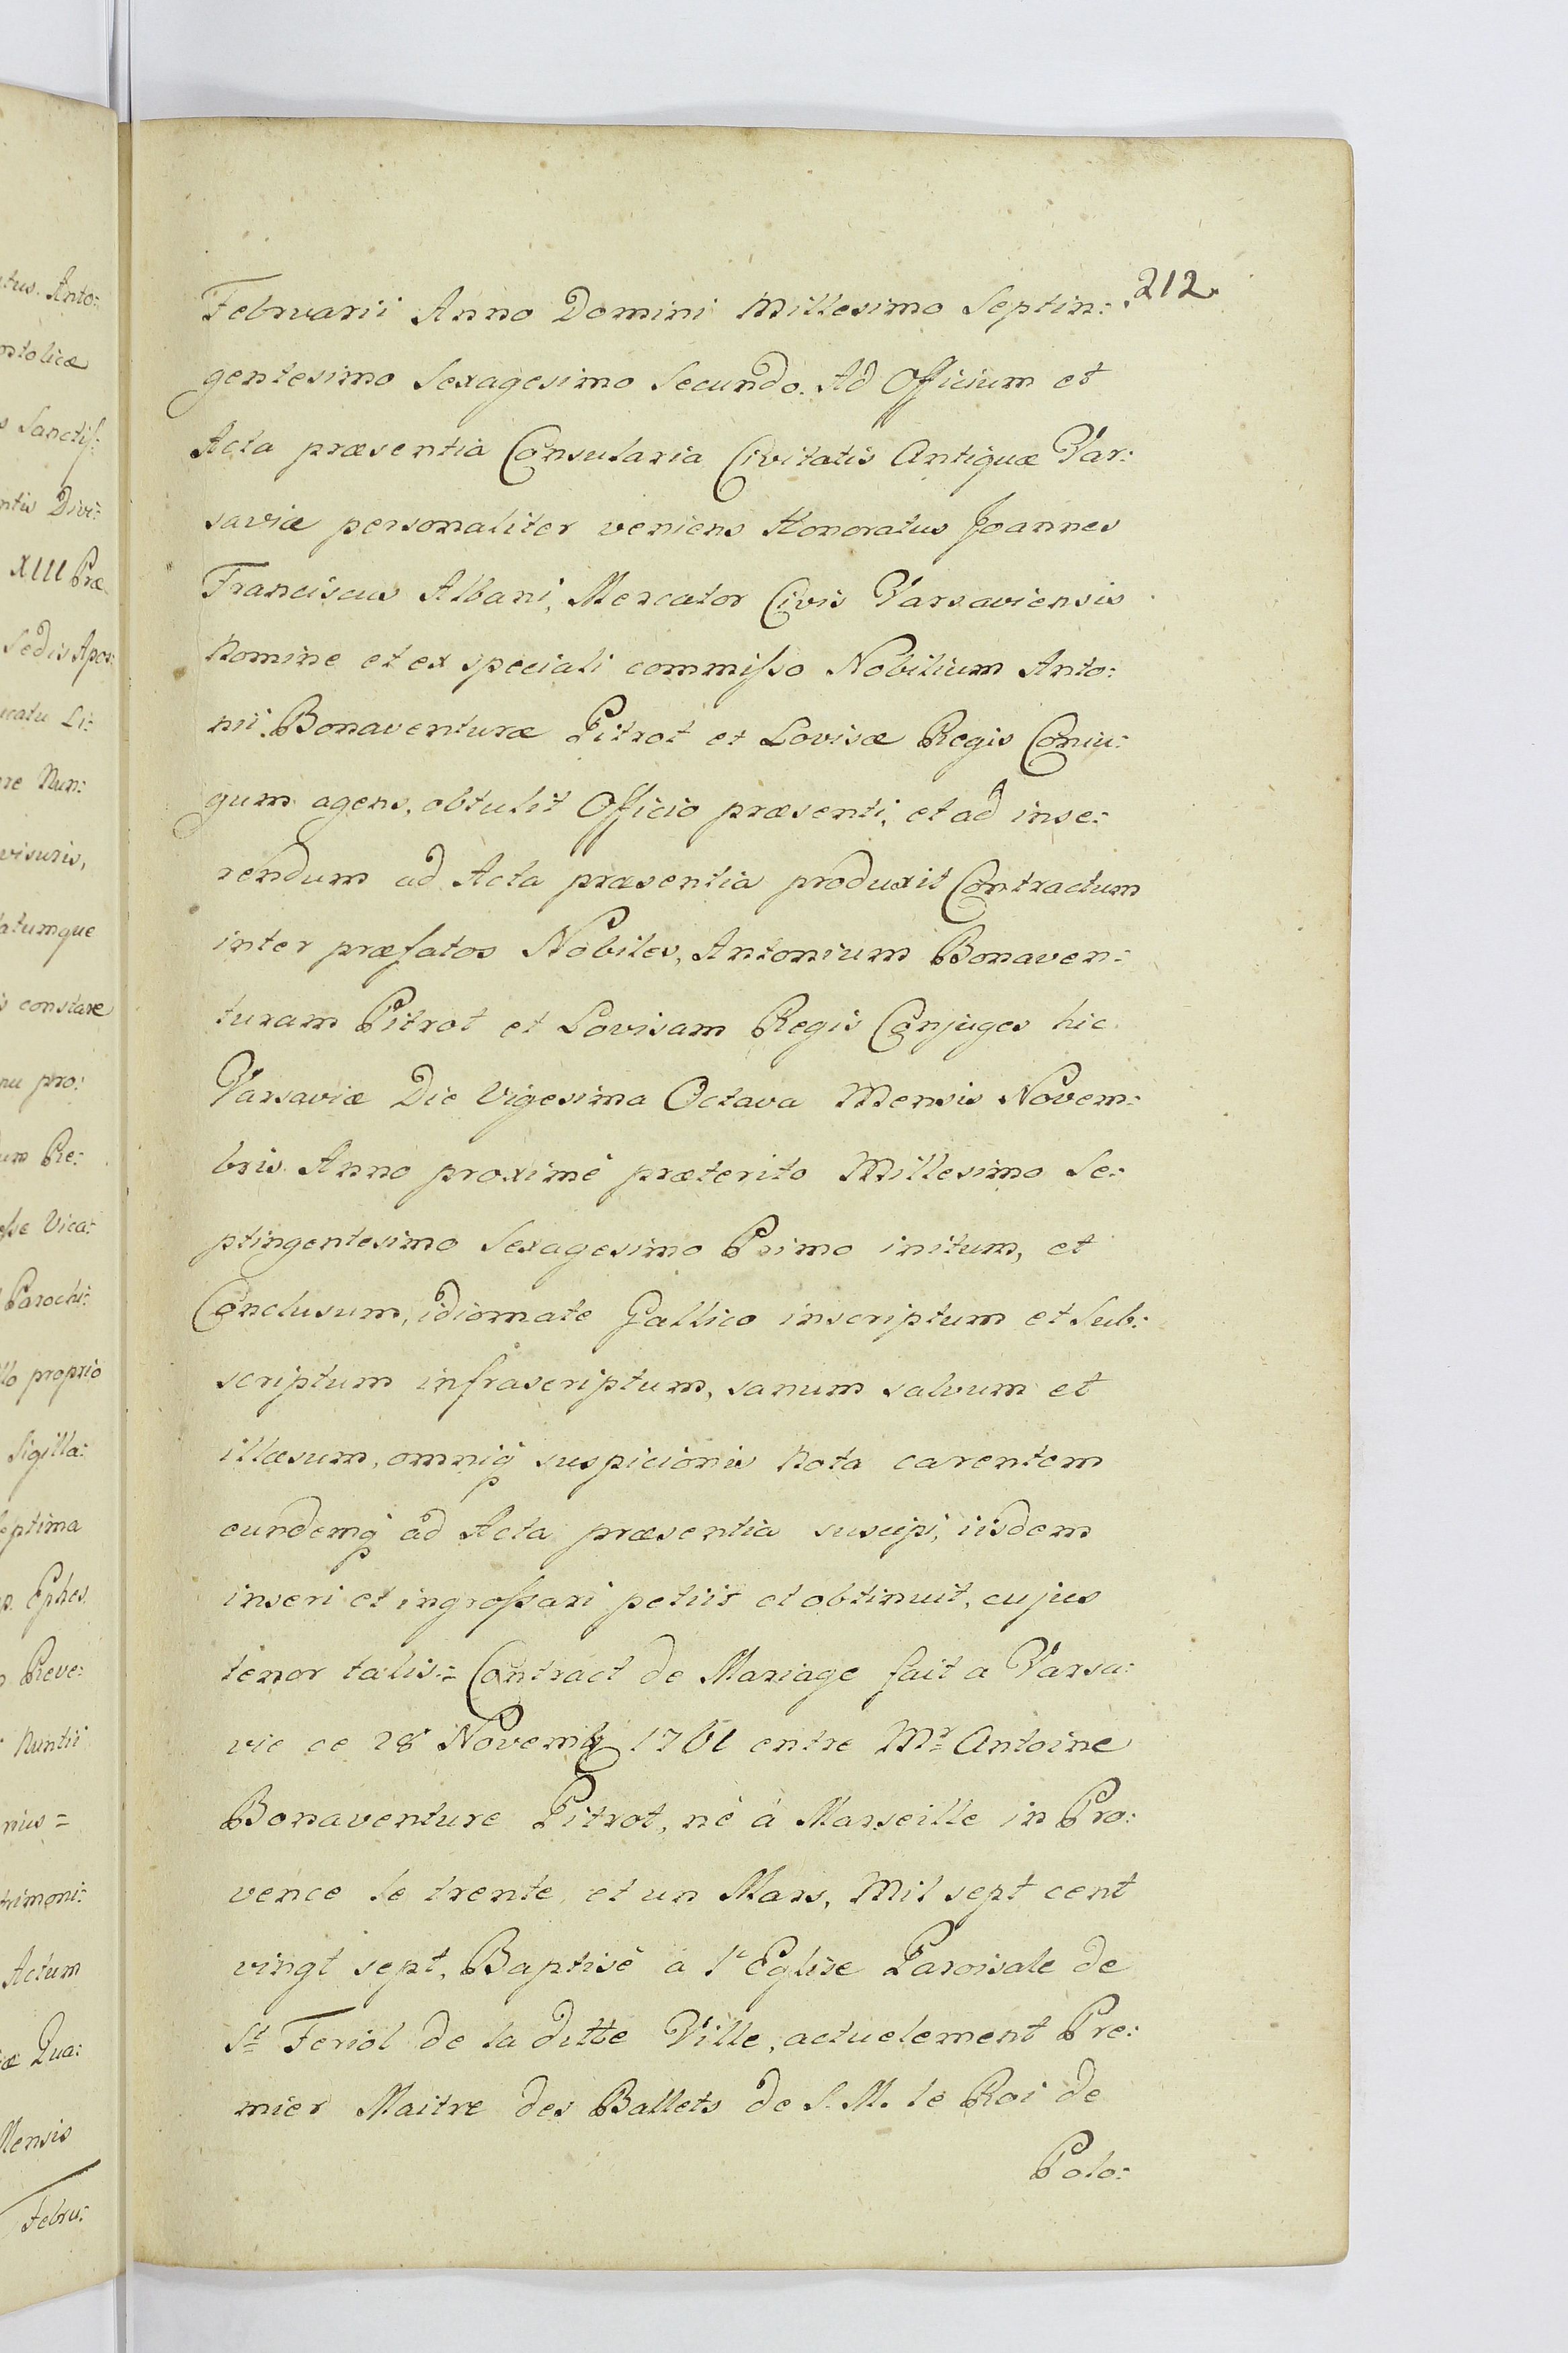 212.
Februarii Anno Domini Millesimo Septin:
gentesimo Sexagesimo Secundo. Ad Officium et
Acta præsentia Consularia Civitatis Antiquæ Var:
saviæ personaliter veniens Honoratus Joannes
Franciscus Albani, Mercator Civis Varsaviensis
Nomine et ex speciali commisso Nobilium Anto:
nii Bonaventuræ Pitrot et Lovisæ Regis Coniu:
gum agens, obtulit Officio præsenti, et ad inse:
rendum ad Acta præsentia produxit Contractum
inter præfatos Nobiles, Antonium Bonaven:
turam Pitrot et Lovisam Regis Conjuges hic
Varsaviæ Die Vigesima Octava Mensis Novem:
bris Anno proximè præterito Millesimo Se:
ptingentesimo Sexagesimo Primo initum, et
Conclusum, idiomate Gallico inscriptum et Sub:
scriptum infrascriptum, sanum salvum et
illæsum, omniq suspicionis Nota carentem
eundemq ad Acta præsentia suscipi, iisdem
inseri et ingrossari petiit et obtinuit, cujus
tenor talis:= Contract de Mariage fait a Varsa:
vie ce 28 Novemb 1761 entre Mr Antoine
Bonaventure Pitrot, nè à Marseille in Pro:
vence le trente et un Mars, Mil sept cent
vingt sept, Baptisè a l'Eglise Paroisale de
St Feriol de la ditte Ville, actuelement Pre:
mier Maitre des Ballets de S. M. le Roi de
Polo:
atus Anto:
ostolicæ
s Sanctiss:
ntis Divi:
XIII Præ
Sedis Apos:
icatu Li:
re Nun:
visuris,
atumque
s constare
nu pro:
um Re:
esse Vica:
Parochi:
llo proprio
Sigilla:
Septima
p. Ephes.
Reve:
Nuntii
nius =
trimoni:
Actum
æ Qua:
Mensis
Febru: